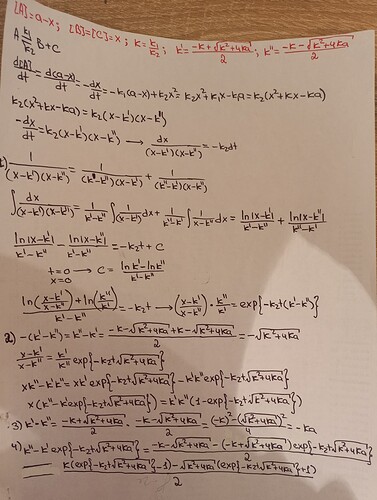 [A]=a-x; [B]=[C]=x; K=k₁/k₂; K'=(-K+√(K²+4Ka))/2; K''=(-K-√(K²+4Ka))/2
A ⇌ B+C (k₁, k₂)
d[A]/dt = d(a-x)/dt = -dx/dt = -k₁(a-x)+k₂x² = k₂x²+k₁x-k₁a = k₂(x²+Kx-Ka)
k₂(x²+Kx-Ka) = k₂(x-K')(x-K'')
-dx/dt = k₂(x-K')(x-K'') → dx/((x-K')(x-K'')) = -k₂dt
1/((x-K')(x-K'')) = 1/((K''-K')(x-K')) + 1/((K''-K')(x-K''))
∫dx/((x-K')(x-K'')) = 1/(K'-K'') ∫1/(x-K') dx + 1/(K''-K') ∫1/(x-K'') dx = ln|x-K'|/(K'-K'') + ln|x-K''|/(K''-K')
ln|x-K'|/(K'-K'') - ln|x-K''|/(K'-K'') = -k₂t + C
t=0
x=0 → C = (lnK'-lnK'')/(K'-K'')
(ln((x-K')/(x-K''))+ln(K''/K'))/(K'-K'') = -k₂t → ((x-K')/(x-K''))·K''/K' = exp{-k₂t(K'-K'')}
2) -(K'-K'') = K''-K' = (-K-√(K²+4Ka)+K-√(K²+4Ka))/2 = -√(K²+4Ka)
(x-K')/(x-K'') = K'/K'' exp{-k₂t√(K²+4Ka)}
xK''-K'K'' = xK'exp{-k₂t√(K²+4Ka)} - K'K''exp{-k₂t√(K²+4Ka)}
x(K''-K'exp{-k₂t√(K²+4Ka)}) = K'K''(1-exp{-k₂t√(K²+4Ka)})
3) K'·K'' = (-K+√(K²+4Ka))/2 · (-K-√(K²+4Ka))/2 = ((-K)²-(√(K²+4Ka))²)/4 = -Ka
4) K''-K'exp{-k₂t√(K²+4Ka)} = (-K-√(K²+4Ka)-(-K+√(K²+4Ka))exp{-k₂t√(K²+4Ka)})/2
= (K(exp{-k₂t√(K²+4Ka)}-1)-√(K²+4Ka)(exp{-k₂t√(K²+4Ka)}+1))/2